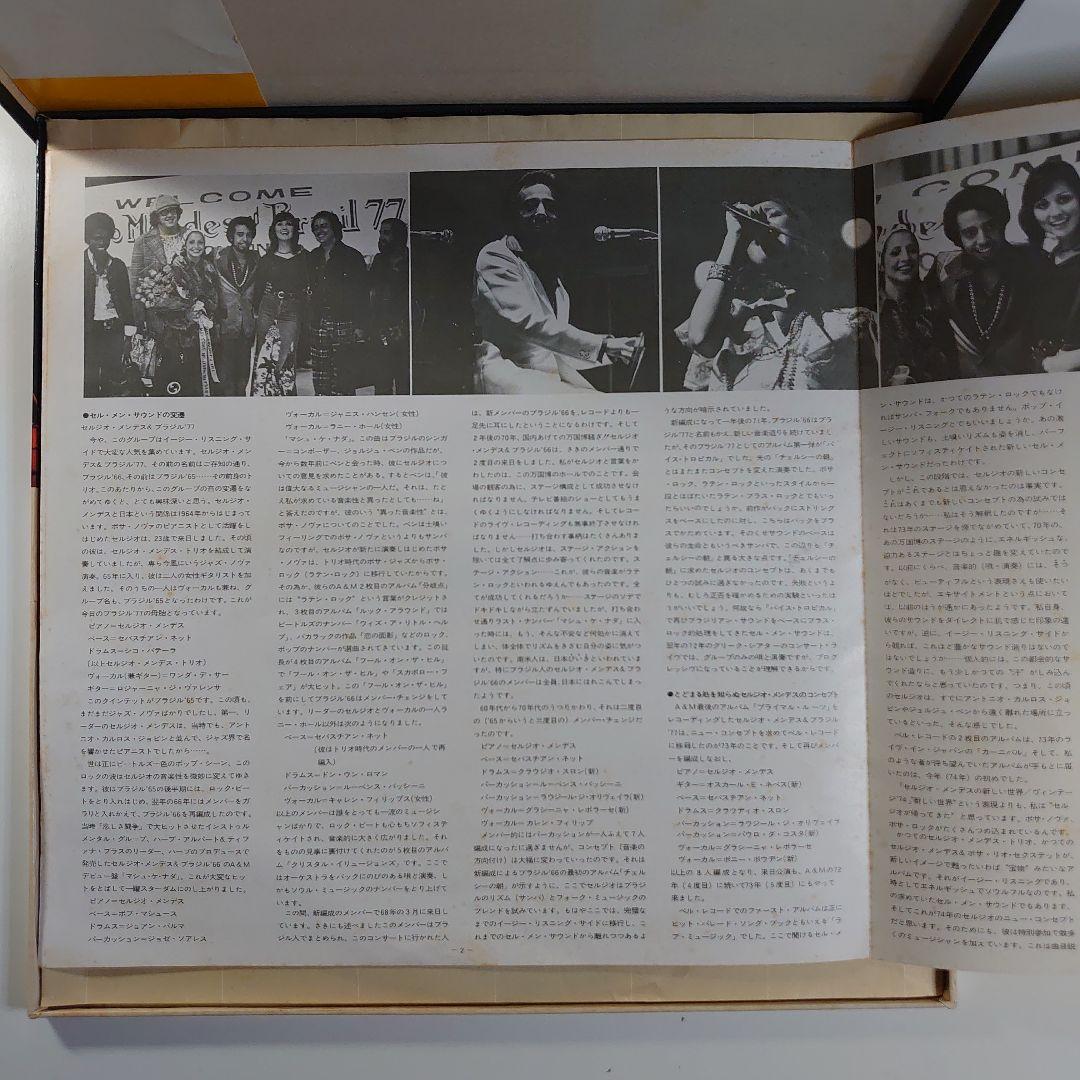 WELCOME
Mendes & Brasil '77
●セル・メン・サウンドの変遷
セルジオ・メンデス&ブラジル'77
今や、このグループはイージー・リスニング・サ
イドで大変な人気を集めています。セルジオ・メン
デス&ブラジル'77、その前の名前はご存知の通り、
ブラジル'66、その前はブラジル'65……その前身のト
リオ。このあたりから、このグループの音の変遷をな
がめてゆくと、とても興味深いと思う。セルジオ・
メンデスと日本という関係は1964年からはじまって
います。ボサ・ノヴァのピアニストとして活躍をし
はじめたセルジオは、23歳で来日しました。その頃
の彼は、セルジオ・メンデス・トリオを結成して演
奏していましたが、専ら今風にいうジャズ・ノヴァ
演奏。65年に入り、彼は二人の女性ギタリストを加
えました。そのうちの一人はヴォーカルも兼ね、グ
ループ名も、ブラジル'65となったわけです。これが
今日のブラジル'77の母胎となっています。
ピアノ=セルジオ・メンデス
ベース=セバスチアン・ネット
ドラムス=シコ・バテーラ
(以上セルジオ・メンデス・トリオ)
ヴォーカル(兼ギター)=ワンダ・デ・サー
ギター=ロジャーニャ・ジ・ヴァレンサ
このクインテットがブラジル'65です。この頃も、
まだまだジャズ・ノヴァばかりでしたし、第一、リ
ーダーのセルジオ・メンデスは、当時でも、アント
ニオ・カルロス・ジョビンと並んで、ジャズ界で名
を響かせたピアニストでしたから……。
世は正にビートルズ一色のポップ・シーン、この
ロックの波はセルジオの音楽性を微妙に変えてゆき
ます。彼はブラジル'65の後半期には、ロック・ビー
トをとり入れはじめ、翌年の66年にはメンバーをガ
ラリと入れかえて、ブラジル'66を再編成したのです。
当時「悲しき闘牛」で大ヒットさせたインストゥル
メンタル・グループ、ハーブ・アルパート&ティファ
ナ・ブラスのリーダー、ハーブのプロデュースで
発売したセルジオ・メンデス&ブラジル'66のA&M
デビュー盤「マシュ・ケ・ナダ」、これが大変なヒッ
トをとばして一躍スターダムにのし上りました。
ピアノ=セルジオ・メンデス
ベース=ボブ・マシュース
ドラムス=ジュアン・パルマ
パーカッション=ジョゼ・ソアレス
ヴォーカル=ジャニス・ハンセン(女性)
ヴォーカル=ラニー・ホール(女性)
「マシュ・ケ・ナダ」。この曲はブラジルのシンガ
ー=コンポーザー、ジョルジュ・ベンの作品だが、
今から数年前にベンと会った時、彼にセルジオにつ
いての意見を求めたことがある。するとベンは、「彼
は偉大なるミュージシャンの一人だ。それは、たと
え私が求めている音楽性と異ったとしても……ね」
と答えたのですが、彼のいう“異った音楽性”とは、
ボサ・ノヴァについてのことでした。ベンは土壌い
フィーリングでのボサ・ノヴァというよりもサンバ
なのですが、セルジオが新たに演奏しはじめたボサ
・ノヴァは、トリオ時代のボサ・ジャズからボサ・
ロック(ラテン・ロック)に移行していたからです。
その為か、彼らのA&M2枚目のアルバム「分岐点」
には“ラテン・ロック”という言葉がクレジットさ
れ、3枚目のアルバム「ルック・アラウンド」では
ビートルズのナンバー「ウィズ・ア・リトル・ヘル
プ」、バカラックの作品「恋の面影」などのロック、
ポップのナンバーが選曲されてきています。この延
長が4枚目のアルバム「フール・オン・ザ・ヒル」
で「フール・オン・ザ・ヒル」や「スカボロー・フ
ェア」が大ヒット。この「フール・オン・ザ・ヒル」
を前にしてブラジル'66はメンバー・チェンジをして
います。リーダーのセルジオとヴォーカルの一人ラ
ニー・ホール以外は次のようになりました。
ベース=セバスチアン・ネット
(彼はトリオ時代のメンバーの一人で再
編入)
ドラムス=ドン・ウン・ロマン
パーカッション=ルーベンス・バッシーニ
ヴォーカル=キャレン・フィリップス(女性)
以上のメンバーは誰をとっても一流のミュージシ
ャンばかりで、ロック・ビートも心もちソフィステ
ィケイトされ、音楽的に大きく広がりました。それ
をものの見事に裏付けてくれたのが5枚目のアルバ
ム「クリスタル・イリュージョンズ」です。ここで
はオーケストラをバックにのびのある唄と演奏、し
かもソウル・ミュージックのナンバーをとり上げて
います。
この間、新編成のメンバーで68年の3月に来日し
ています。さきにも述べましたこのメンバーはブラ
ジル人でまとめられ、このコンサートに行かれた人
は、新メンバーのブラジル'66を、レコードよりも一
足先に耳にしたということになるわけです。そして
2年後の70年、国内あげての万国博騒ぎがセルジオ
・メンデス&ブラジル'66は、さきのメンバー通りで
2度目の来日をしました。私がセルジオと言葉をか
わしたのは、この万国博のホールでのことです。会
場の観客の為に、ステージ構成として成功させなけ
ればなりません。テレビ番組のショーとしてもうま
くゆくようにしなければなりません。そしてレコー
ドのライヴ・レコーディングも無事終了させなけれ
ばなりません……打ち合わす事柄はたくさんありま
した。しかしセルジオは、ステージ・アクションを
除いては全て了解点に歩み寄ってくれたのです。ス
テージ・アクション……これが、彼らの音楽がラテ
ン・ロックといわれるゆえんでもあったのです。全
てが成功してくれるだろうか……ステージのソデで
ドキドキしながら立たずんでいましたが、打ち合わ
せ通りラスト・ナンバー「マシュ・ケ・ナダ」に入
った時には、もう、そんな不安など何処かに消えて
しまい、体全体でリズムをきざむ自分の姿に気がつ
いたのです。南米人は、日本びいきといわれています
が、特にブラジル人のセルジオ・メンデス&ブラ
ジル'66のメンバーは全員、日本にほれこんでしまっ
たようです。
60年代から70年代のうつりかわり、それは二度目
の('65からいうと三度目の)メンバー・チェンジだっ
たのです。
ピアノ=セルジオ・メンデス
ベース=セバスチアン・ネット
ドラムス=クラウジオ・スロン(新)
パーカッション=ルーベンス・バッシーニ
パーカッション=ラウジール・ジ・オリヴェイラ(新)
ヴォーカル=グラシーニャ・レポラーセ(新)
ヴォーカル=カレン・フィリップ
メンバー的にはパーカッションが一人ふえて7人
編成になったに過ぎませんが、コンセプト(音楽の
方向付け)は大幅に変わっていったのです。それは
新編成によるブラジル'66の最初のアルバム「チェル
シーの朝」が示すように、ここでセルジオはブラジ
ルのリズム(サンバ)とフォーク・ミュージックの
ブレンドを試みています。もはやここでは、完璧な
までのイージー・リスニング・サイドに移行し、こ
れまでのセル・メン・サウンドから離れつつあるよ
うな方向が暗示されていました。
新編成になって一年後の71年、ブラジル'66はブラ
ジル'77と名前もかえ、新しい音楽造りを続けていまし
たが、そのブラジル'77としてのアルバム第一弾が「パ
イス・トロピカル」でした。先の「チェルシーの朝」
とはまたまたコンセプトを変えた演奏でした。ボサ
・ロック、ラテン・ロックといったスタイルから一
段とはばたいたラテン・ブラス・ロックとでもいっ
たらいいのでしょうか。前作がバックにストリングス
をベースにしたのに対し、こちらはバックをブラ
スでかためています。そのくせサウンドのベースは
彼らの生命ともいうべきサンバで、この辺りも「チ
ェルシーの朝」と異る大きな点です。「チェルシーの
朝」に求めたセルジオのコンセプトは、あくまでも
ひとつの試みに過ぎなかったのです。失敗というよ
りも、むしろ正否を確かめるための実験といったほ
うがいいでしょう。何故なら「パイス・トロピカル」
で再びブラジリアン・サウンドをベースにブラス・
ロックの処理をしてきたセル・メン・サウンドは、
翌年の72年のグリーク・シアターのコンサート・ラ
イヴでは、グループのみの唄と演奏ですが、プログ
レッシヴになっていることが理解できるからです。
●とどまる処を知らぬセルジオ・メンデスのコンセプト
A&M最後のアルバム「プライマル・ルーツ」を
レコーディングしたセルジオ・メンデス&ブラジル
'77は、ニュー・コンセプトを求めてベル・レコード
に移籍したのが73年のことです。そして再びメンバ
ーを編成しなおし、
ピアノ=セルジオ・メンデス
ギター=オスカール・E・ネベス(新)
ベース=セバスチアン・ネット
ドラムス=クラウディオ・スロン
パーカッション=ラウジール・ジ・オリヴェイラ
パーカッション=パウロ・ダ・コスタ(新)
ヴォーカル=グラシーニャ・レポラーセ
ヴォーカル=ボニー・ボウデン(新)
以上の8人編成となり、来日公演も、A&Mの72年
(4度目)に続いて73年(5度目)にもやって
来ました。
ベル・レコードでのファースト・アルバムは正に
ヒット・パレード・ソング・ブックともいえる「ラ
ブ・ミュージック」でした。ここで聞けるセル・メ
ン・サウンドは、かつてのラテン・ロックでもなけ
ればサンバ・フォークでもありません。ポップ・イ
ージー・リスニングとでもいいましょうか、あの激
しいサウンドも、土壌いリズムも姿を消し、パーフ
ェクトにソフィスティケイトされた新しいセル・メ
ン・サウンドだったわけです。
しかし、この段階では、セルジオの新しいコンセ
プトがこれであるとは思えなかったのは事実です。
これはあくまでも新しいコンセプトの為の試みでは
ないだろうか……私はそう解釈したのですが……そ
れは73年のステージを傍でながめていて、70年の、
あの万国博のステージのように、エネルギッシュな、
迫力あるステージとはちょっと趣を変えていたので
す。以前にくらべ、音楽的(唄・演奏)には、そう
がなく、ビューティフルという表現さえも使いたい
ほどでしたが、エキサイトメントという点において
は、以前のほうが遥かにあったようです。私自身、
彼らのサウンドをダイレクトに肌で感じた印象の違
いですが、逆に、イージー・リスニング・サイドか
ら観れば、これほど豊かなサウンド造りはないので
はないでしょうか……個人的には、この都会的なサ
ウンド造りに、もう少しかつての“汗”がしみ込ん
でくれたならと思っていたのです。つまり、この頃
のセルジオは、すでにアントニオ・カルロス・ジョ
ビンやジョルジュ・ベンから遠く離れた場所に立っ
ているといった、そんな感じでした。
ベル・レコードの2枚目のアルバムは、73年のラ
イヴ・イン・ジャパンの「カーニバル」。そして、私
のような者が待ち望んでいたアルバムが手もとに届
いたのは、今年(74年)の初めでした。
「セルジオ・メンデスの新しい世界/ヴィンテー
ジ'74」“新しい世界”という表現よりも、私は“セル
ジオが帰ってきた”と思っています。ボサ・ノヴァ、
ボサ・ロックがたくさんつめ込まれているんです。
かつてのセルジオ・メンデス・トリオ、かつての
セルジオ・メンデス&ボサ・リオ・セクステットが、
新しいイメージで甦ったいわば“宝物”みたいなア
ルバムです。それがイージー・リスニングであり、
時としてエネルギッシュでソウルフルなのです。私
の求めていたセル・メン・サウンドでもあります。
そしてこれが74年のセルジオのニュー・コンセプト
だと思います。そのためにも、彼は特別参加で数多
くのミュージシャンを加えています。これは曲目説
－2－